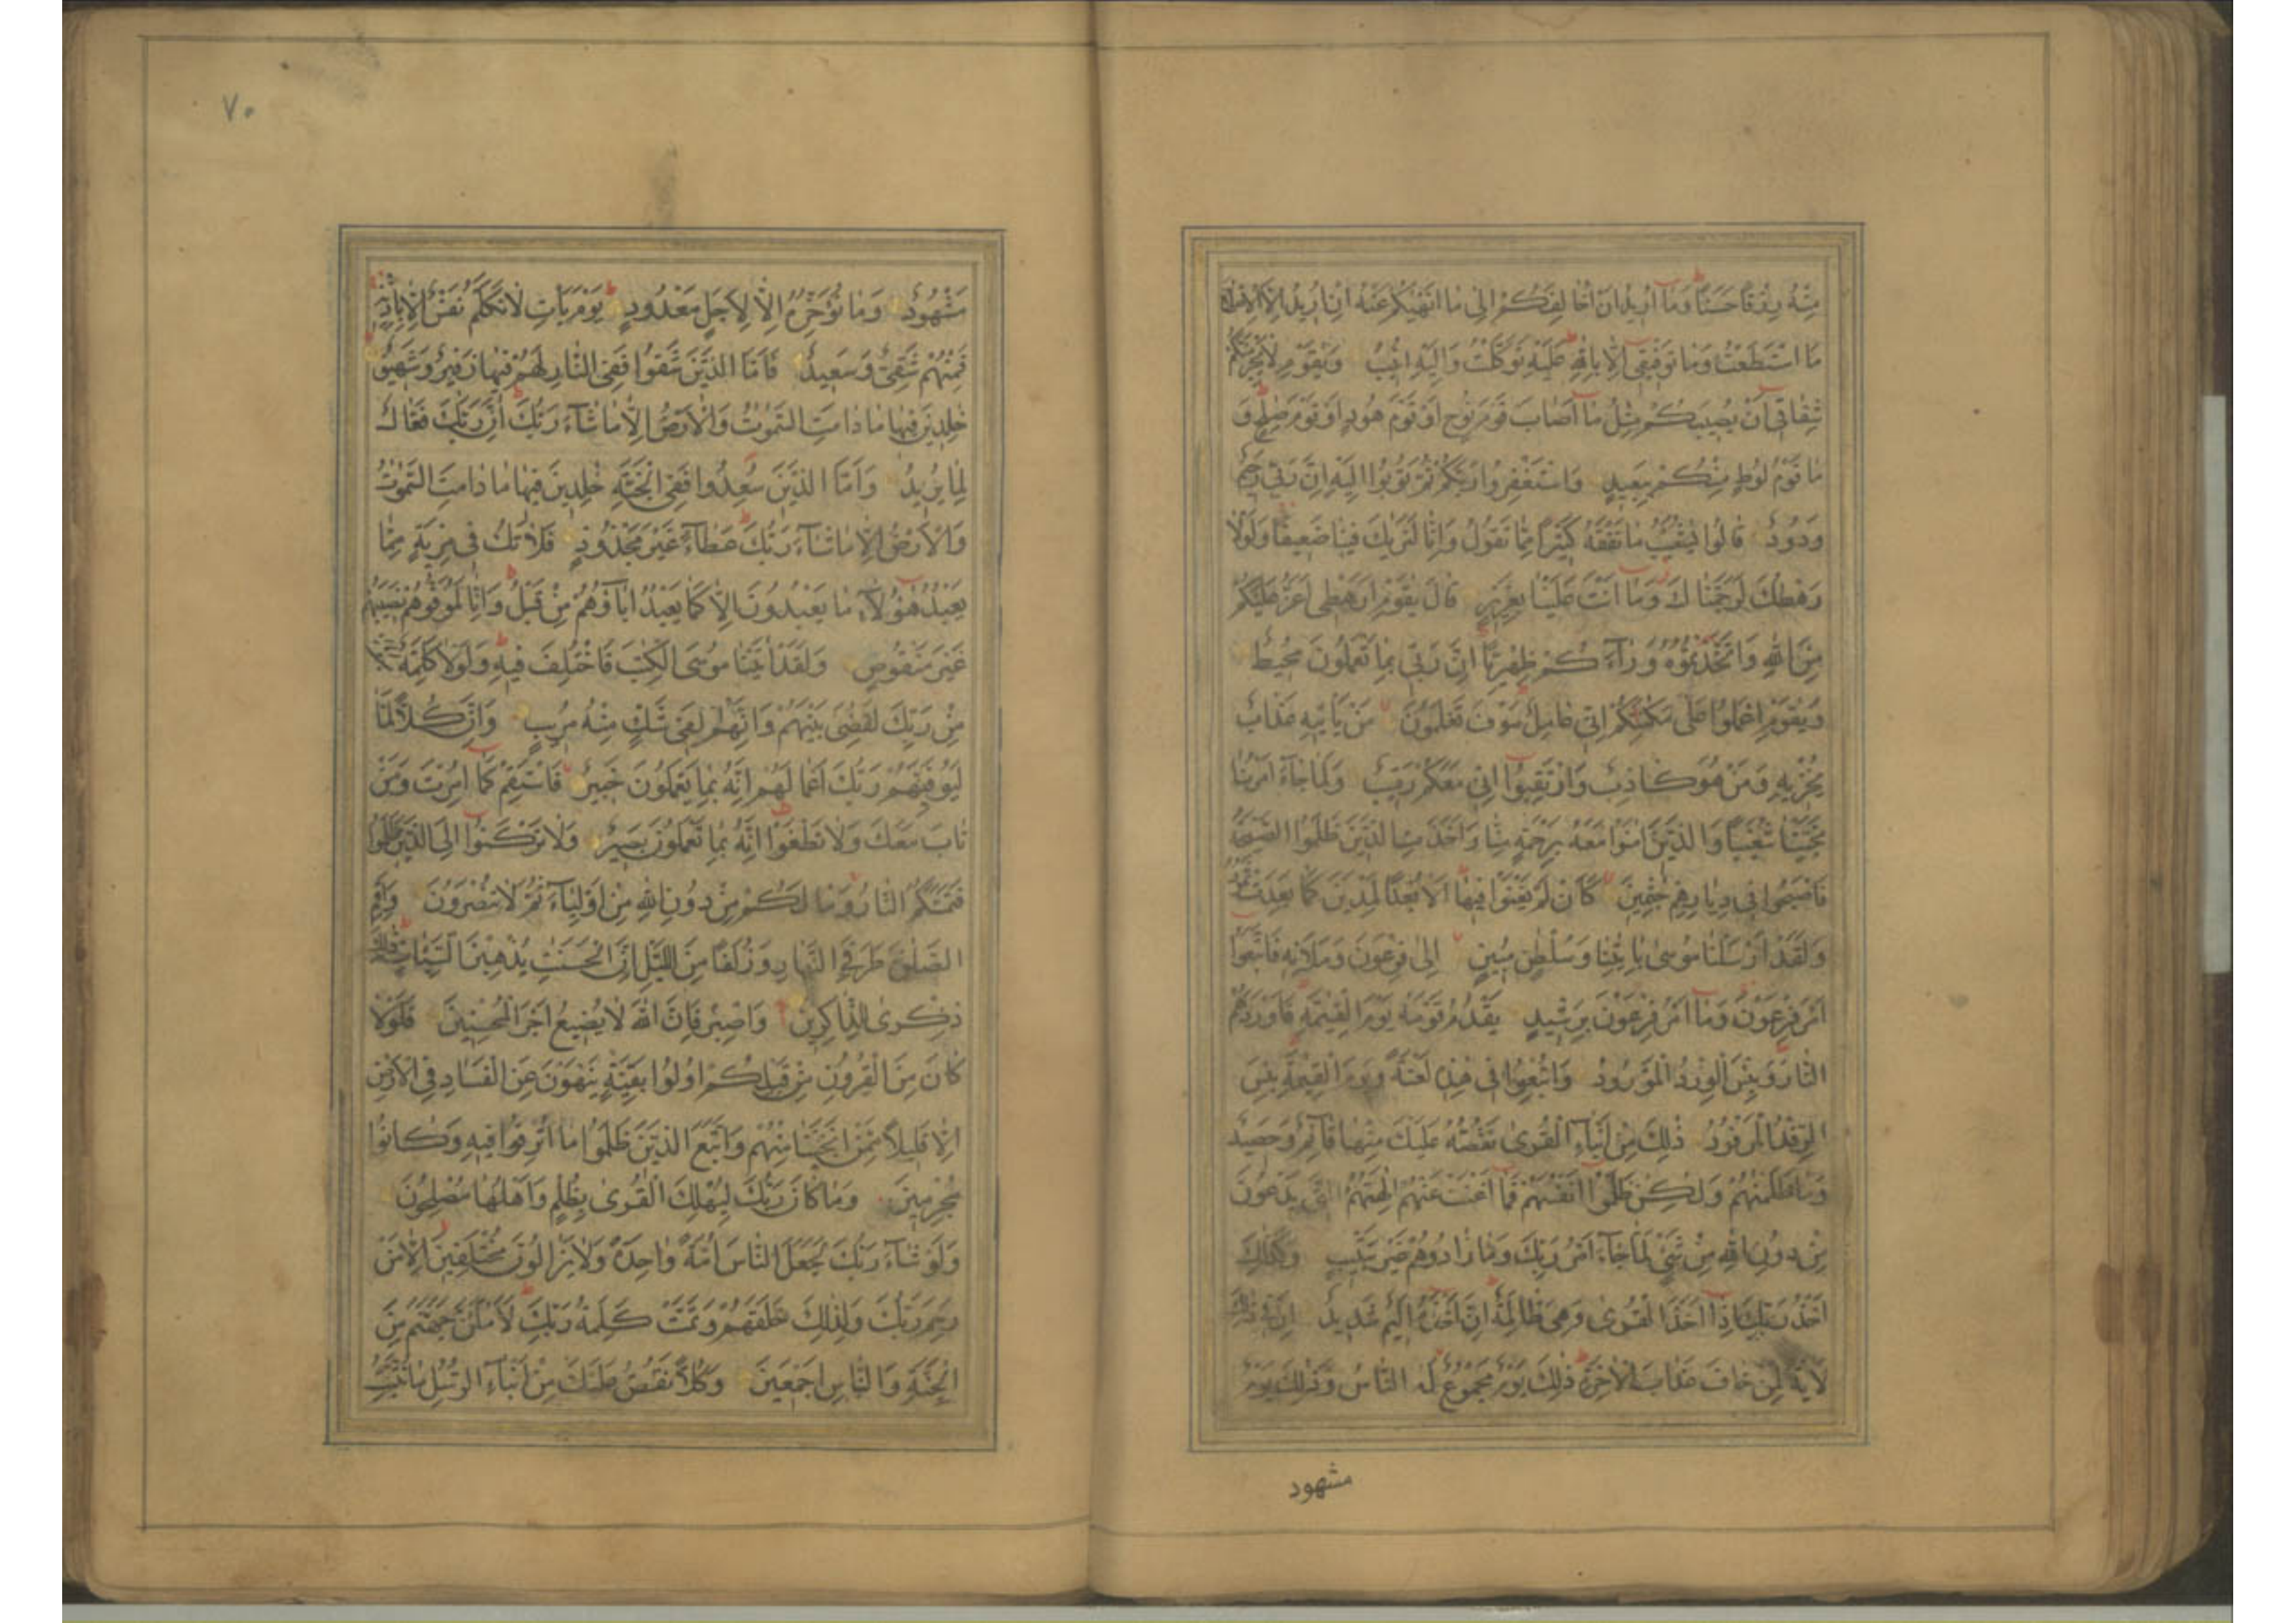 مِنْهُ رِزْقًا حَسَنًا وَمَآ اُرِيدُ اَنْ اُخَالِفَكُمْ اِلٰى مَا اَنْهٰيكُمْ عَنْهُ اِنْ اُرِيدُ اِلَّا الْاِصْلَاحَ
مَا اسْتَطَعْتُ وَمَا تَوْفِيقِىٓ اِلَّا بِاللّٰهِ عَلَيْهِ تَوَكَّلْتُ وَاِلَيْهِ اُنِيبُ وَيٰقَوْمِ لَا يَجْرِمَنَّكُمْ
شِقَاقِىٓ اَنْ يُصِيبَكُمْ مِثْلُ مَآ اَصَابَ قَوْمَ نُوحٍ اَوْ قَوْمَ هُودٍ اَوْ قَوْمَ صٰلِحٍ وَ
مَا قَوْمُ لُوطٍ مِنْكُمْ بِبَعِيدٍ وَاسْتَغْفِرُوا رَبَّكُمْ ثُمَّ تُوبُوٓا اِلَيْهِ اِنَّ رَبِّى رَحِيمٌ
وَدُودٌ قَالُوا يٰشُعَيْبُ مَا نَفْقَهُ كَثِيرًا مِمَّا تَقُولُ وَاِنَّا لَنَرٰيكَ فِينَا ضَعِيفًا وَلَوْلَا
رَهْطُكَ لَرَجَمْنَاكَ وَمَآ اَنْتَ عَلَيْنَا بِعَزِيزٍ قَالَ يٰقَوْمِ اَرَهْطِىٓ اَعَزُّ عَلَيْكُمْ
مِنَ اللّٰهِ وَاتَّخَذْتُمُوهُ وَرَآءَكُمْ ظِهْرِيًّا اِنَّ رَبِّى بِمَا تَعْمَلُونَ مُحِيطٌ
وَيٰقَوْمِ اعْمَلُوا عَلٰى مَكَانَتِكُمْ اِنِّى عَامِلٌ سَوْفَ تَعْلَمُونَ مَنْ يَأْتِيهِ عَذَابٌ
يُخْزِيهِ وَمَنْ هُوَ كَاذِبٌ وَارْتَقِبُوٓا اِنِّى مَعَكُمْ رَقِيبٌ وَلَمَّا جَآءَ اَمْرُنَا
نَجَّيْنَا شُعَيْبًا وَالَّذِينَ اٰمَنُوا مَعَهُ بِرَحْمَةٍ مِنَّا وَاَخَذَتِ الَّذِينَ ظَلَمُوا الصَّيْحَةُ
فَاَصْبَحُوا فِى دِيَارِهِمْ جٰثِمِينَ كَاَنْ لَمْ يَغْنَوْا فِيهَا اَلَا بُعْدًا لِمَدْيَنَ كَمَا بَعِدَتْ ثَمُودُ
وَلَقَدْ اَرْسَلْنَا مُوسٰى بِاٰيٰتِنَا وَسُلْطٰنٍ مُبِينٍ اِلٰى فِرْعَوْنَ وَمَلَائِهِ فَاتَّبَعُوٓا
اَمْرَ فِرْعَوْنَ وَمَآ اَمْرُ فِرْعَوْنَ بِرَشِيدٍ يَقْدُمُ قَوْمَهُ يَوْمَ الْقِيٰمَةِ فَاَوْرَدَهُمُ
النَّارَ وَبِئْسَ الْوِرْدُ الْمَوْرُودُ وَاُتْبِعُوا فِى هٰذِهِ لَعْنَةً وَيَوْمَ الْقِيٰمَةِ بِئْسَ
الرِّفْدُ الْمَرْفُودُ ذٰلِكَ مِنْ اَنْبَآءِ الْقُرٰى نَقُصُّهُ عَلَيْكَ مِنْهَا قَآئِمٌ وَحَصِيدٌ
وَمَا ظَلَمْنٰهُمْ وَلٰكِنْ ظَلَمُوٓا اَنْفُسَهُمْ فَمَآ اَغْنَتْ عَنْهُمْ اٰلِهَتُهُمُ الَّتِى يَدْعُونَ
مِنْ دُونِ اللّٰهِ مِنْ شَىْءٍ لَمَّا جَآءَ اَمْرُ رَبِّكَ وَمَا زَادُوهُمْ غَيْرَ تَتْبِيبٍ وَكَذٰلِكَ
اَخْذُ رَبِّكَ اِذَآ اَخَذَ الْقُرٰى وَهِىَ ظَالِمَةٌ اِنَّ اَخْذَهُ اَلِيمٌ شَدِيدٌ اِنَّ فِى ذٰلِكَ
لَاٰيَةً لِمَنْ خَافَ عَذَابَ الْاٰخِرَةِ ذٰلِكَ يَوْمٌ مَجْمُوعٌ لَهُ النَّاسُ وَذٰلِكَ يَوْمٌ
مشهود
٧٠
مَشْهُودٌ وَمَا نُؤَخِّرُهُ اِلَّا لِاَجَلٍ مَعْدُودٍ يَوْمَ يَأْتِ لَا تَكَلَّمُ نَفْسٌ اِلَّا بِاِذْنِهِ
فَمِنْهُمْ شَقِىٌّ وَسَعِيدٌ فَاَمَّا الَّذِينَ شَقُوا فَفِى النَّارِ لَهُمْ فِيهَا زَفِيرٌ وَشَهِيقٌ
خٰلِدِينَ فِيهَا مَا دَامَتِ السَّمٰوٰتُ وَالْاَرْضُ اِلَّا مَا شَآءَ رَبُّكَ اِنَّ رَبَّكَ فَعَّالٌ
لِمَا يُرِيدُ وَاَمَّا الَّذِينَ سُعِدُوا فَفِى الْجَنَّةِ خٰلِدِينَ فِيهَا مَا دَامَتِ السَّمٰوٰتُ
وَالْاَرْضُ اِلَّا مَا شَآءَ رَبُّكَ عَطَآءً غَيْرَ مَجْذُوذٍ فَلَا تَكُ فِى مِرْيَةٍ مِمَّا
يَعْبُدُ هٰٓؤُلَآءِ مَا يَعْبُدُونَ اِلَّا كَمَا يَعْبُدُ اٰبَآؤُهُمْ مِنْ قَبْلُ وَاِنَّا لَمُوَفُّوهُمْ نَصِيبَهُمْ
غَيْرَ مَنْقُوصٍ وَلَقَدْ اٰتَيْنَا مُوسَى الْكِتٰبَ فَاخْتُلِفَ فِيهِ وَلَوْلَا كَلِمَةٌ سَبَقَتْ
مِنْ رَبِّكَ لَقُضِىَ بَيْنَهُمْ وَاِنَّهُمْ لَفِى شَكٍّ مِنْهُ مُرِيبٍ وَاِنَّ كُلًّا لَمَّا
لَيُوَفِّيَنَّهُمْ رَبُّكَ اَعْمَالَهُمْ اِنَّهُ بِمَا يَعْمَلُونَ خَبِيرٌ فَاسْتَقِمْ كَمَآ اُمِرْتَ وَمَنْ
تَابَ مَعَكَ وَلَا تَطْغَوْا اِنَّهُ بِمَا تَعْمَلُونَ بَصِيرٌ وَلَا تَرْكَنُوٓا اِلَى الَّذِينَ ظَلَمُوا
فَتَمَسَّكُمُ النَّارُ وَمَا لَكُمْ مِنْ دُونِ اللّٰهِ مِنْ اَوْلِيَآءَ ثُمَّ لَا تُنْصَرُونَ وَاَقِمِ
الصَّلٰوةَ طَرَفَىِ النَّهَارِ وَزُلَفًا مِنَ اللَّيْلِ اِنَّ الْحَسَنٰتِ يُذْهِبْنَ السَّيِّئَاتِ ذٰلِكَ
ذِكْرٰى لِلذّٰاكِرِينَ وَاصْبِرْ فَاِنَّ اللّٰهَ لَا يُضِيعُ اَجْرَ الْمُحْسِنِينَ فَلَوْلَا
كَانَ مِنَ الْقُرُونِ مِنْ قَبْلِكُمْ اُولُوا بَقِيَّةٍ يَنْهَوْنَ عَنِ الْفَسَادِ فِى الْاَرْضِ
اِلَّا قَلِيلًا مِمَّنْ اَنْجَيْنَا مِنْهُمْ وَاتَّبَعَ الَّذِينَ ظَلَمُوا مَآ اُتْرِفُوا فِيهِ وَكَانُوا
مُجْرِمِينَ وَمَا كَانَ رَبُّكَ لِيُهْلِكَ الْقُرٰى بِظُلْمٍ وَاَهْلُهَا مُصْلِحُونَ
وَلَوْ شَآءَ رَبُّكَ لَجَعَلَ النَّاسَ اُمَّةً وٰاحِدَةً وَلَا يَزَالُونَ مُخْتَلِفِينَ اِلَّا مَنْ
رَحِمَ رَبُّكَ وَلِذٰلِكَ خَلَقَهُمْ وَتَمَّتْ كَلِمَةُ رَبِّكَ لَاَمْلَئَنَّ جَهَنَّمَ مِنَ
الْجِنَّةِ وَالنَّاسِ اَجْمَعِينَ وَكُلًّا نَقُصُّ عَلَيْكَ مِنْ اَنْبَآءِ الرُّسُلِ مَا نُثَبِّتُ